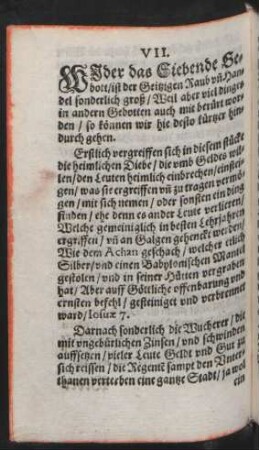 VII.
WIder das Siebende Ge-
bott/ist der Geitzigen Raub vñ Han-
del sonderlich groß/ Weil aber viel dinges
in andern Gebotten auch mit berürt wor-
den / so können wir hie desto kürtzer hin-
durch gehen.
Erstlich vergreiffen sich in diesem stücke
die heimlichen Diebe/ die vmb Geldes wil-
len/den Leuten heimlich einbrechen/einstei-
gen/ was sie ergreiffen vñ zu tragen vermö-
gen / mit sich nemen / oder sonsten ein ding
finden / ehe denn es ander Leute verlieren/
Welche gemeiniglich in besten Lehrjahren
ergriffen/ vñ an Galgen gehenckt werden/
Wie dem Achan geschach/ welcher etlich
Silber/vnd einen Babylonischen Mantel
gestolen/ vnd in seiner Hütten vergraben
hat/ Aber auff Göttliche offenbarung vnd
ernsten befehl/ gesteiniget vnd verbrennet
ward/ Iosuæ 7.
Darnach sonderlich die Wucherer/ die
mit vngebürlichen Zinsen/ vnd schwinden
auffsetzen/ vieler Leute Geldt vnd Gut zu
sich reissen/ die Regent sampt den Vnter-
thanen verterben eine gantze Stadt/ ja wol
ein